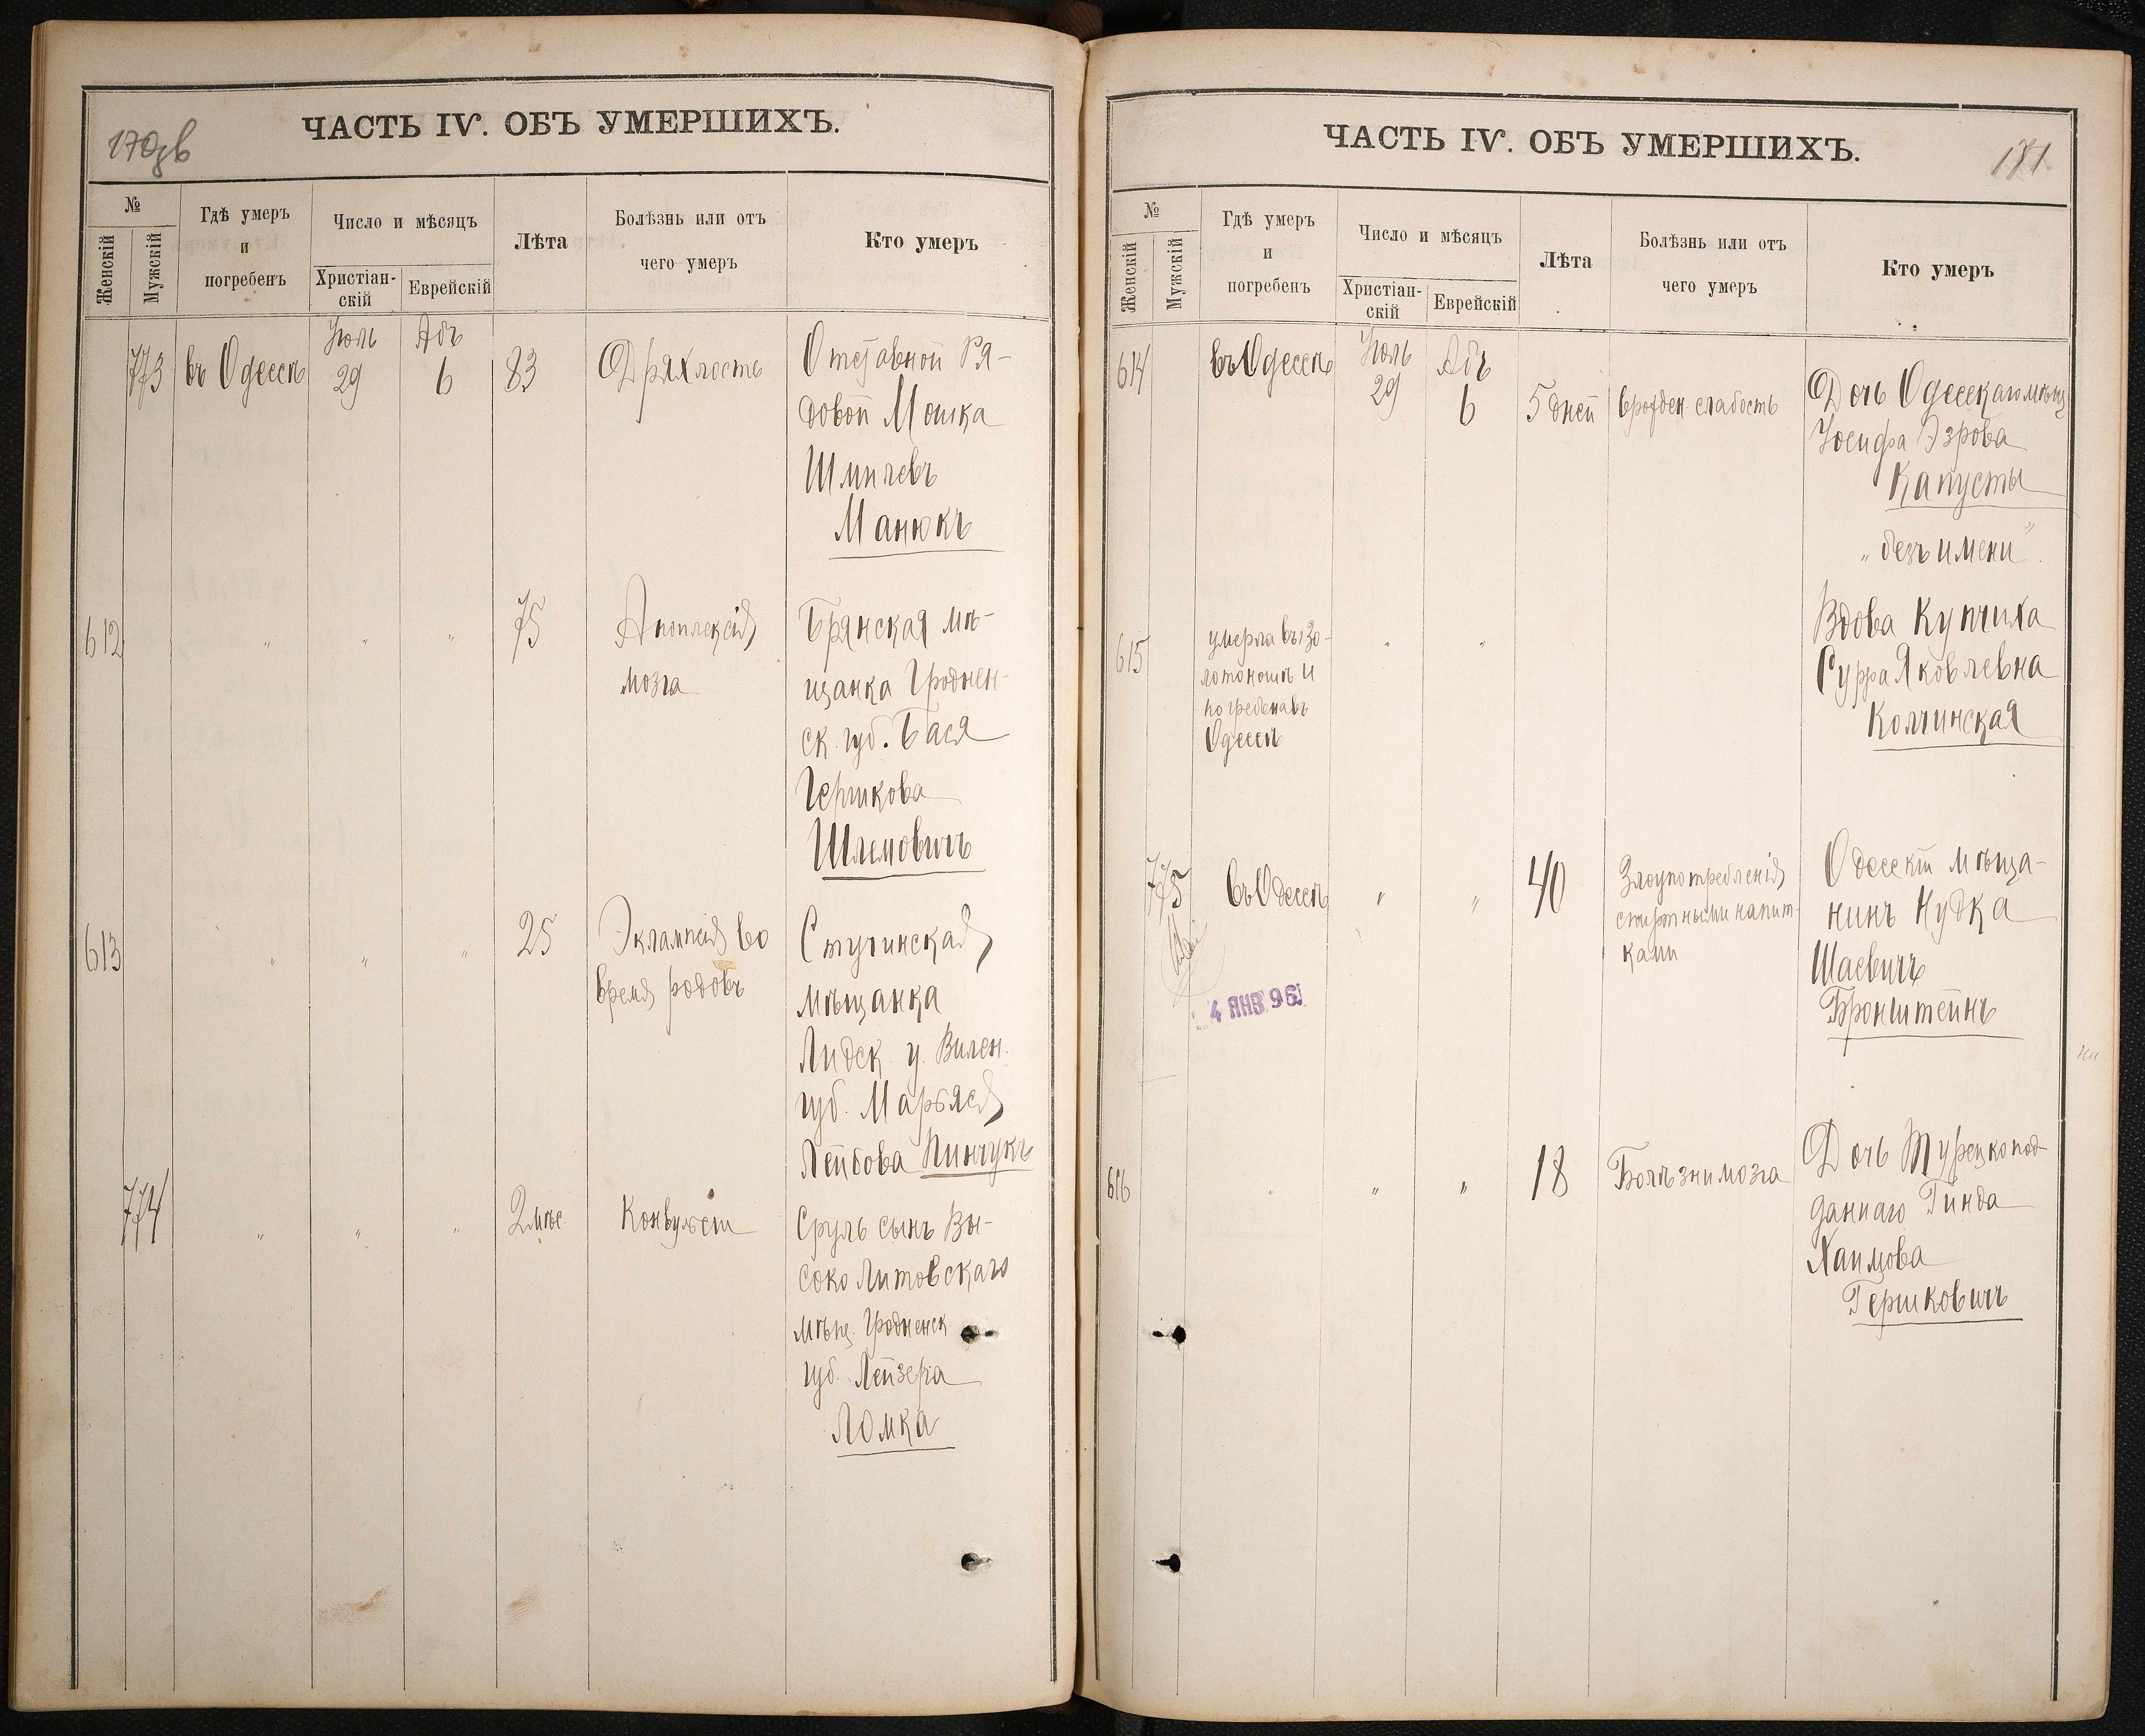 170 об
ЧАСТЬ IV. ОБЪ УМЕРШИХЪ.
№
Женскій
Мужскій
Гдѣ умеръ
и
погребенъ
Число и мѣсяцъ
Христіан-
скій
Еврейскій
Лѣта
Болѣзнь или отъ
чего умеръ
Кто умеръ
773
въ Одессѣ
Іюль
29
Абъ
6
83
Дряхлость
Отставной Ря-
довой Мошка
Шмилевъ
Манюкъ
612
"
"
"
75
Апоплексія
мозга
Брянская мѣ-
щанка Гроднен-
ск. губ. Бася
Гершкова
Шлемовичъ
613
"
"
"
25
Эклампсія во
время родовъ
Стучинская
мѣщанка
Лидск. у. Вилен.
губ. Марьяся
Лейбова Пинчукъ
774
"
"
"
2 мѣс.
Конвульсіи
Сруль сынъ Вы-
соко Литовскаго
мѣщ. Гродненск
губ. Лейзера
Ломка
ЧАСТЬ IV. ОБЪ УМЕРШИХЪ.
171.
№
Женскій
Мужскій
Гдѣ умеръ
и
погребенъ
Число и мѣсяцъ
Христіан-
скій
Еврейскій
Лѣта
Болѣзнь или отъ
чего умеръ
Кто умеръ
614
въ Одессѣ
Іюль
29
Абъ
6
5 дней
врожден слабость
Дочь Одесскаго мѣщ
Іосифа Эзрова
Капусты
"безъ имени".
615
умерла въ Зо-
лотоношѣ и
погребена въ
Одессѣ
"
"
Вдова Купчиха
Сурра Яковлевна
Колчинская
775
въ Одессѣ
"
"
40
Злоупотребленія
спиртными напит-
ками
Одесскій мѣща-
нинъ Нудка
Шаевичъ
Бронштейнъ
4 ЯНВ. 96
616
"
"
"
18
Болѣзни мозга
Дочь Турецкопод-
даннаго Гинда
Хаимова
Гершковичъ